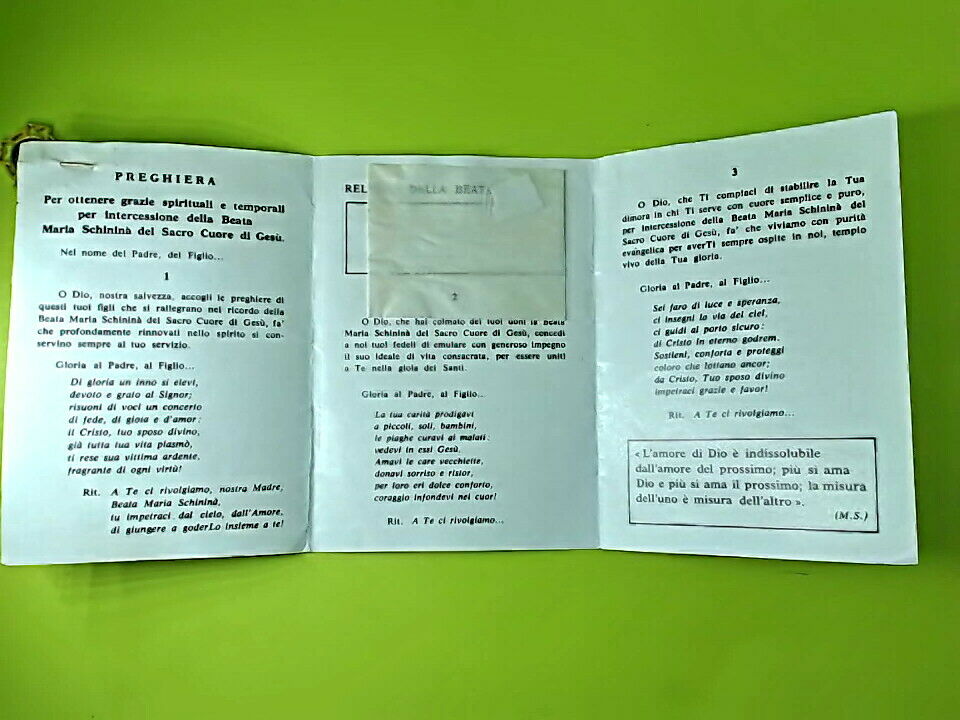 PREGHIERA
Per ottenere grazie spirituali e temporali
per intercessione della Beata
Maria Schininà del Sacro Cuore di Gesù.
Nel nome del Padre, del Figlio...
1
O Dio, nostra salvezza, accogli le preghiere di
questi tuoi figli che si rallegrano nel ricordo della
Beata Maria Schininà del Sacro Cuore di Gesù, fa'
che profondamente rinnovati nello spirito si con-
servino sempre al tuo servizio.
Gloria al Padre, al Figlio...
Di gloria un inno si elevi,
devoto e grato al Signor;
risuoni di voci un concerto
di fede, di gioia e d'amor:
il Cristo, tuo sposo divino,
già tutta tua vita plasmò,
ti rese sua vittima ardente,
fragrante di ogni virtù!
Rit. A Te ci rivolgiamo, nostra Madre,
Beata Maria Schininà,
tu impetraci dal cielo, dall'Amore,
di giungere a goderLo insieme a te!
REL DELLA BEATA
2
O Dio, che hai colmato dei tuoi doni la Beata
Maria Schininà del Sacro Cuore di Gesù, concedi
a noi tuoi fedeli di emulare con generoso impegno
il suo ideale di vita consacrata, per essere uniti
a Te nella gioia dei Santi.
Gloria al Padre, al Figlio...
La tua carità prodigavi
a piccoli, soli, bambini,
le piaghe curavi ai malati:
vedevi in essi Gesù.
Amavi le care vecchiette,
donavi sorriso e ristor,
per loro eri dolce conforto,
coraggio infondevi nei cuor!
Rit. A Te ci rivolgiamo...
3
O Dio, che Ti compiaci di stabilire la Tua
dimora in chi Ti serve con cuore semplice e puro,
per intercessione della Beata Maria Schininà del
Sacro Cuore di Gesù, fa' che viviamo con purità
evangelica per averTi sempre ospite in noi, templo
vivo della Tua gloria.
Gloria al Padre, al Figlio...
Sei faro di luce e speranza,
ci insegni la via del ciel,
ci guidi al porto sicuro:
di Cristo in eterno godrem.
Sostieni, conforta e proteggi
coloro che lottano ancor;
da Cristo, Tuo sposo divino
impetraci grazie e favor!
Rit. A Te ci rivolgiamo...
« L'amore di Dio è indissolubile
dall'amore del prossimo; più si ama
Dio e più si ama il prossimo; la misura
dell'uno è misura dell'altro ».
(M.S.)